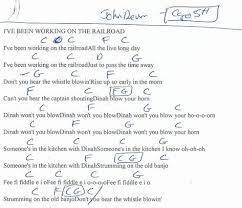 John Denver - CGo5H
I'VE BEEN WORKING ON THE RAILROAD
C C F C
I've been working on the railroadAll the live long day
C C D G
I've been working on the railroadJust to pass the time away
G C F C
Don't you hear the whistle blowin'Rise up so early in the morn
C F G C
Can't you hear the captain shoutingDinah blow your horn
C F G C
Dinah won't you blowDinah won't you blowDinah won't you blow your ho-o-o-orn
C F G C
Dinah won't you blowDinah won't you blowDinah won't you blow your horn
C C C G
Someone's in the kitchen with DinahSomeone's in the kitchen I know oh-oh-oh
C F C G C
Someone's in the kitchen with DinahStrumming on the old banjo
C C C G
Fee fi fiddle e i oFee fi fiddle e i o-o-o-oFee fi fiddle e i o
C F C G C
Strumming on the old banjoDon't you hear the whistle blowin'